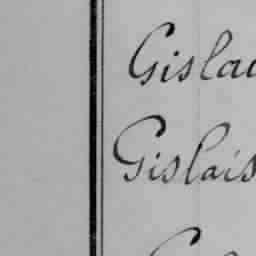 Gislai
Gislais